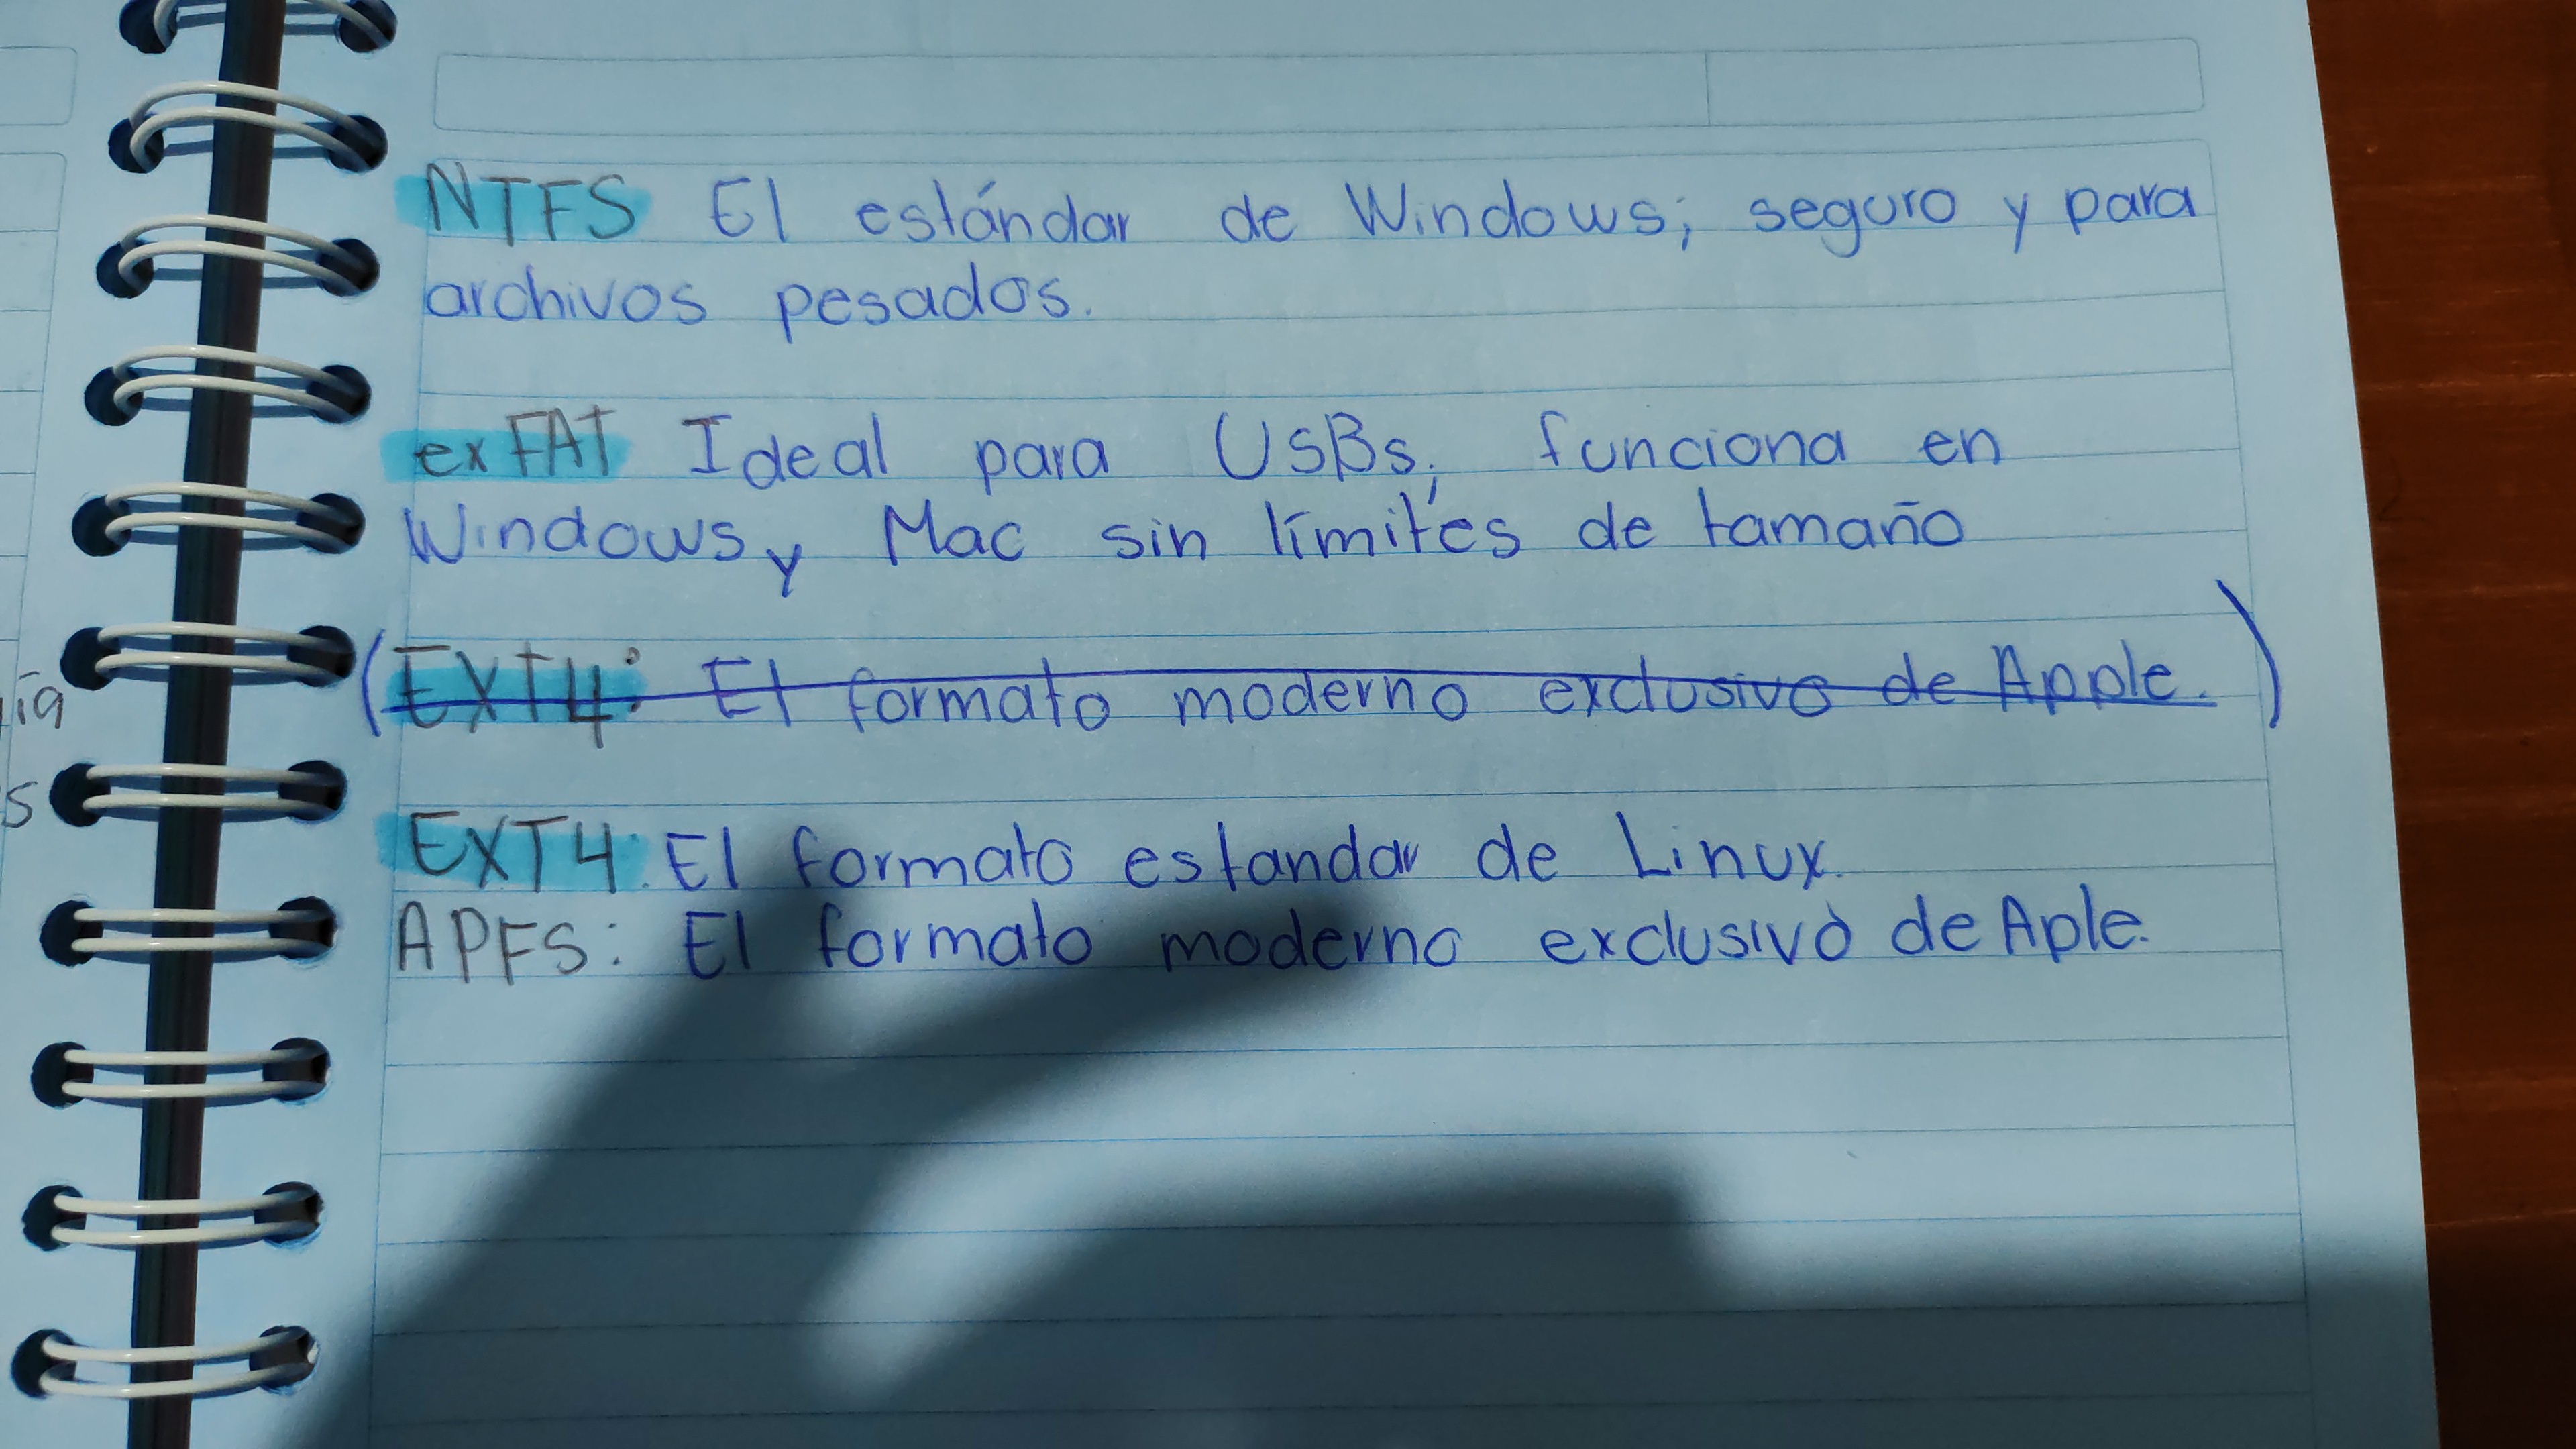 NTFS El estándar de Windows; seguro y para
archivos pesados.
exFAT Ideal para USBs; funciona en
Windows y Mac sin límites de tamaño
(EXT4: El formato moderno exclusivo de Apple.)
EXT4: El formato estandar de Linux.
APFS: El formato moderno exclusivo de Aple.